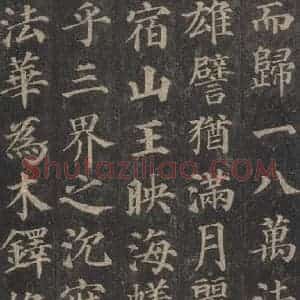 而歸一八萬法
雄譬猶滿月麗
宿山王映海蟻
乎三界之沉寐
法華為木鐸
Shufaziliao.COM